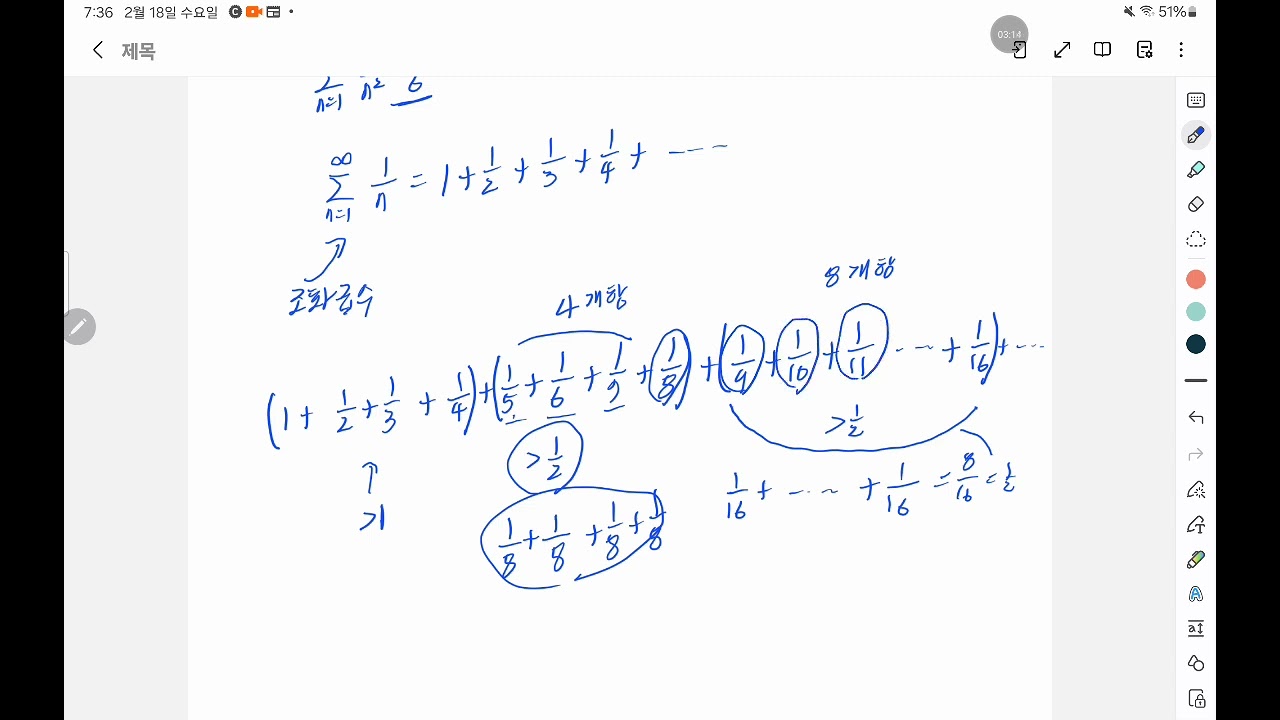 7:36 2월 18일 수요일
51%
03:14
제목
n=1 n² 6
∞
∑ 1/n = 1 + 1/2 + 1/3 + 1/4 + ----
n=1
조화급수
4개항
8개항
(1 + 1/2 + 1/3 + 1/4) + (1/5 + 1/6 + 1/7 + 1/8) + (1/9 + 1/10 + 1/11 ---- + 1/16) + ----
>1
>1/2
>1/2
1/8 + 1/8 + 1/8 + 1/8
1/16 + ---- + 1/16 = 8/16 = 1/2